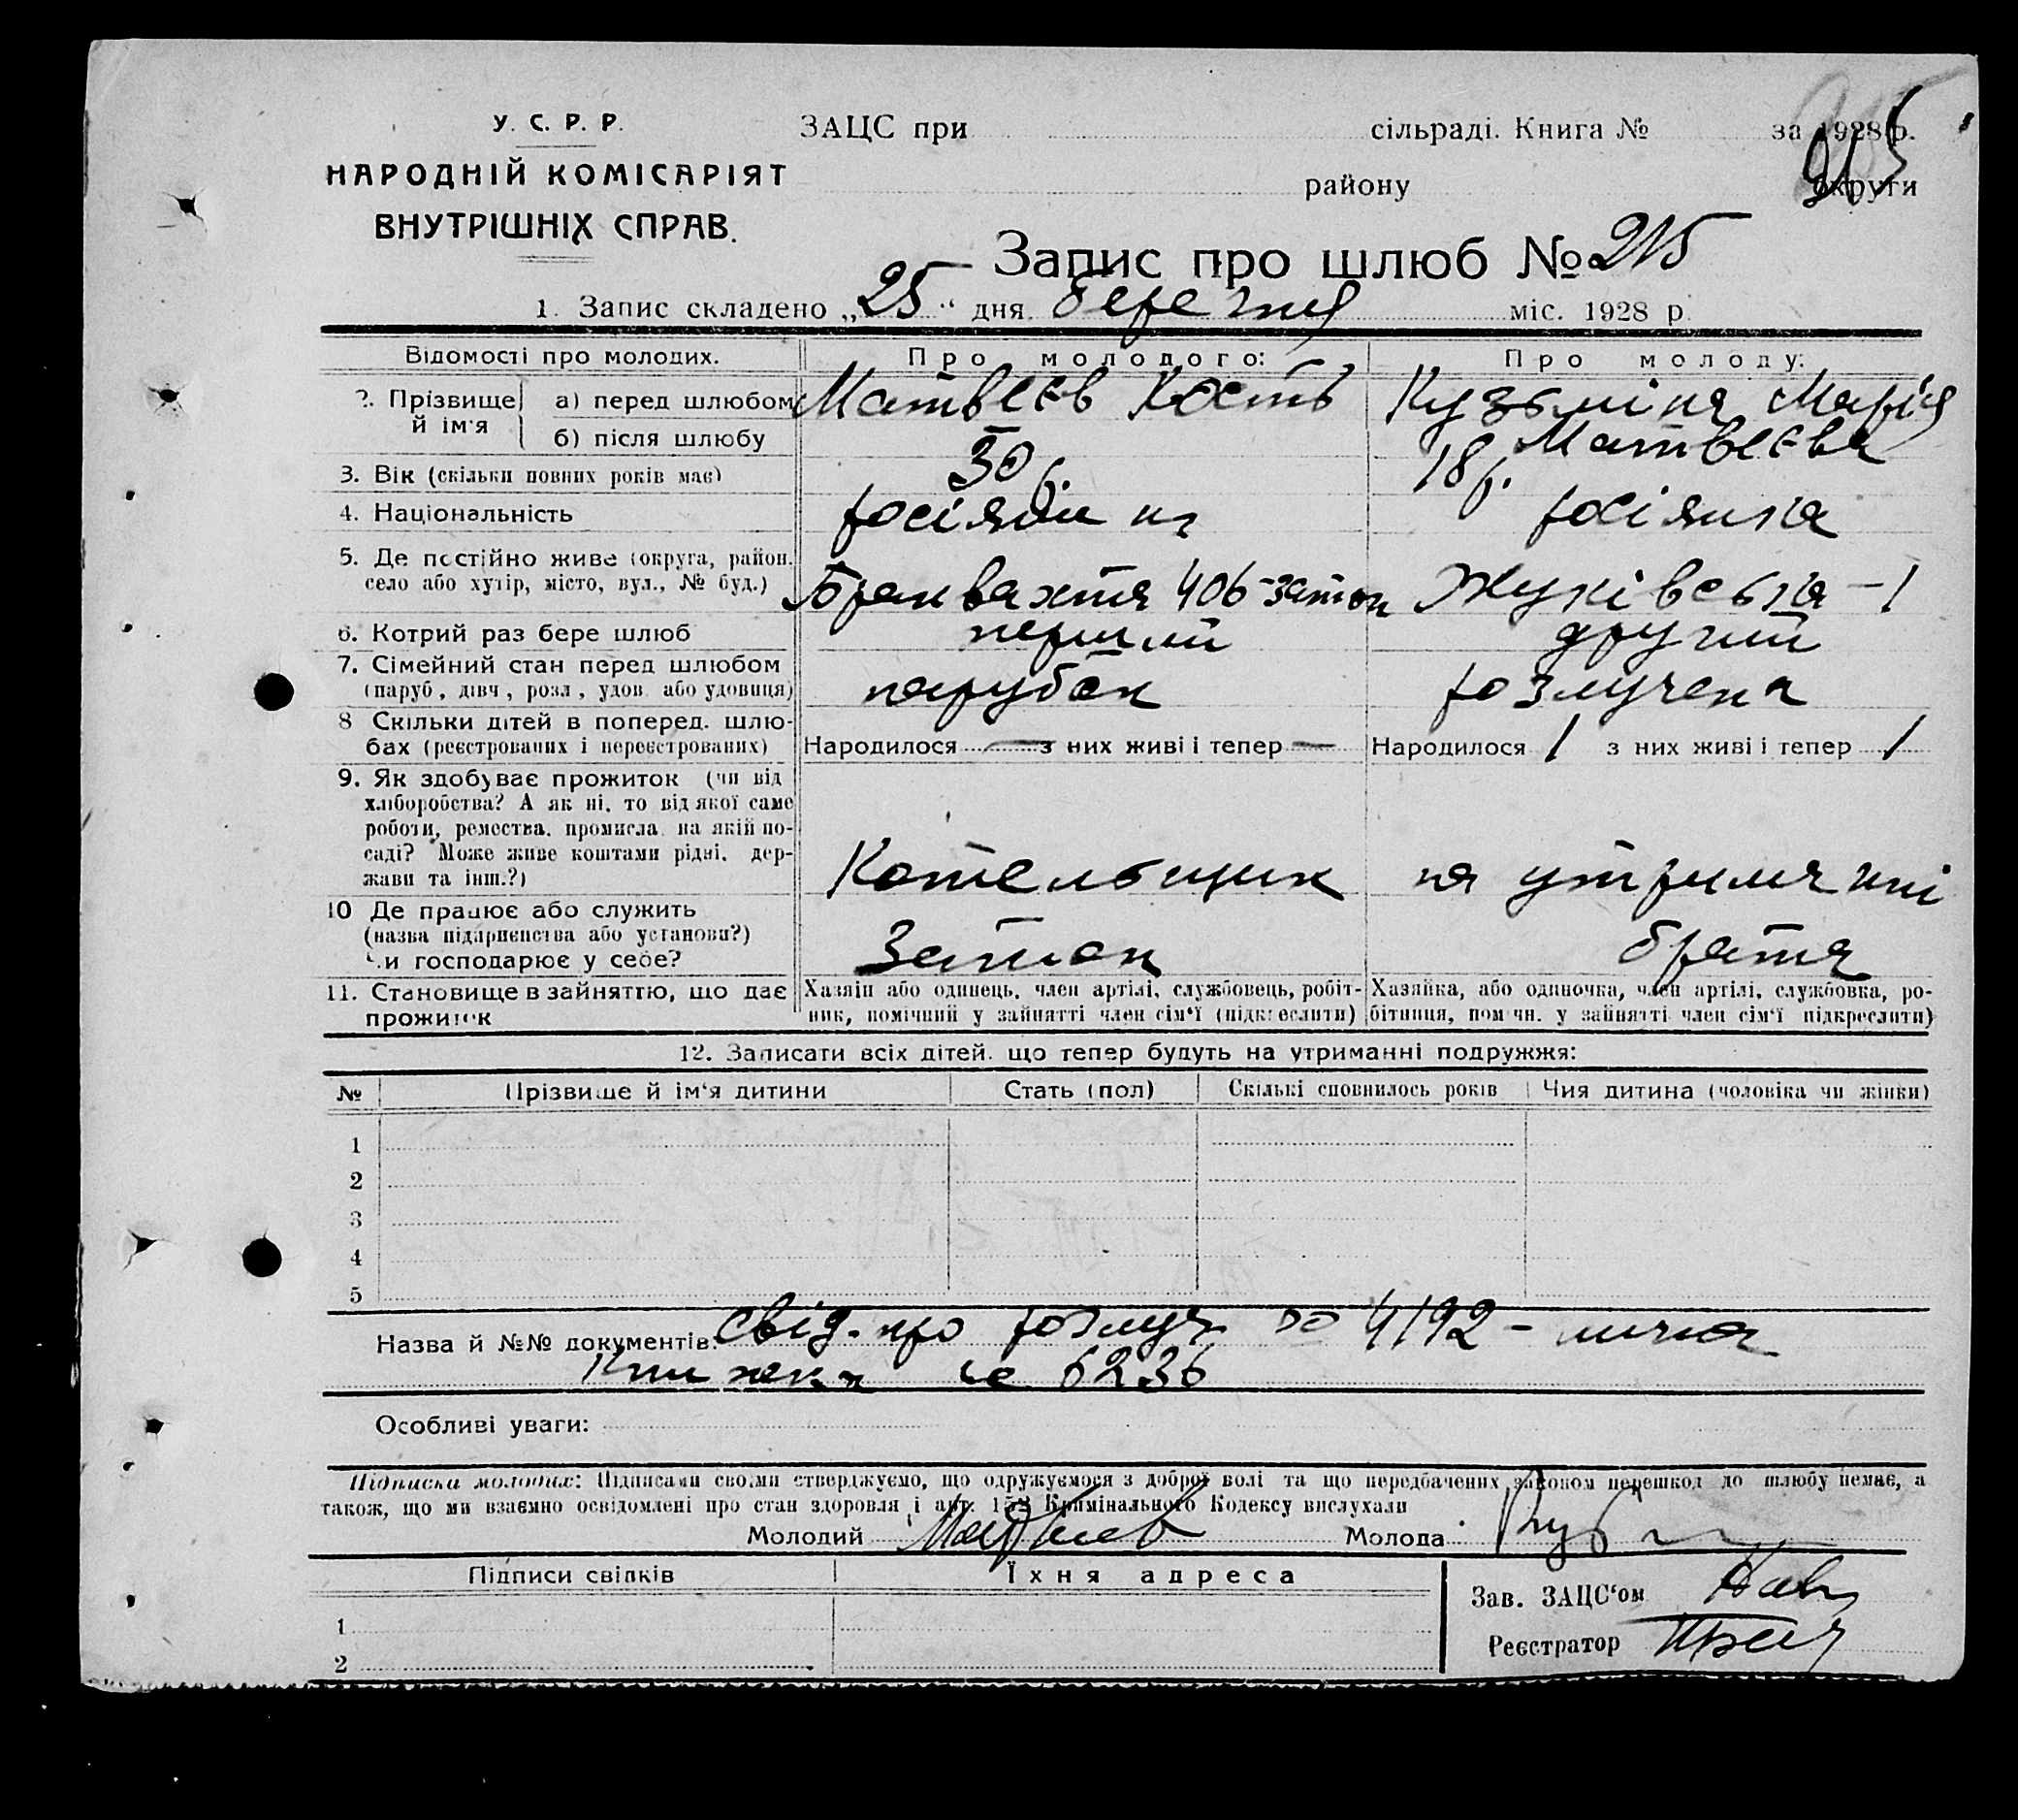 У. С. Р. Р.
НАРОДНІЙ КОМІСАРІЯТ
ВНУТРІШНІХ СПРАВ.
ЗАЦС при сільраді. Книга № за 1928 р.
району округи
215
Запис про шлюб № 215
1. Запис складено „25“ дня березня міс. 1928 р.
Відомості про молодих. Про молодого: Про молоду:
2. Прізвище й ім'я а) перед шлюбом Матвєєв Кость Кузьміна Марія
б) після шлюбу — Матвєєва
3. Вік (скільки повних років має) 30 р. 18 р.
4. Національність росіянин росіянка
5. Де постійно живе (округа, район, село або хутір, місто, вул., № буд.) Бранвахта 406 затон Жуківська - 1
6. Котрий раз бере шлюб перший другий
7. Сімейний стан перед шлюбом (паруб., дівч., розл., удов. або удовиця) парубок розлучена
8 Скільки дітей в поперед. шлюбах (реєстрованих і нереєстрованих) Народилося — з них живі і тепер — Народилося 1 з них живі і тепер 1
9. Як здобуває прожиток (чи від хліборобства? А як ні, то від якої саме роботи, ремества, промисла, на якій посаді? Може живе коштами рідні, держави та інш.?) Котельщик на утриманні
10 Де працює або служить (назва підприємства або установи?) Чи господарює у себе? Затон брата
11. Становище в зайняттю, що дає прожиток Хазяїн або одинець, член артілі, службовець, робітник, помічний у зайнятті член сім'ї (підкреслити) Хазяйка, або одиночка, член артілі, службовка, робітниця, помічн. у зайнятті член сім'ї (підкреслити)
12. Записати всіх дітей, що тепер будуть на утриманні подружжя:
№ Прізвище й ім'я дитини Стать (пол) Скількі сповнилось років Чия дитина (чоловіка чи жінки)
1
2
3
4
5
Назва й №№ документів: Свід. про розлуч 4192 - лична
книжка 6236
Особливі уваги:
Підписка молодих: Підписами своїми стверджуємо, що одружуємося з доброї волі та що передбачених законом перешкод до шлюбу немає, а
також, що ми взаємно освідомлені про стан здоровля і арт. 152 Кримінального Кодексу вислухали
Молодий Матвеев Молода
Підписи свідків Їхня адреса
Зав. ЗАЦС'ом
1
Реєстратор
2